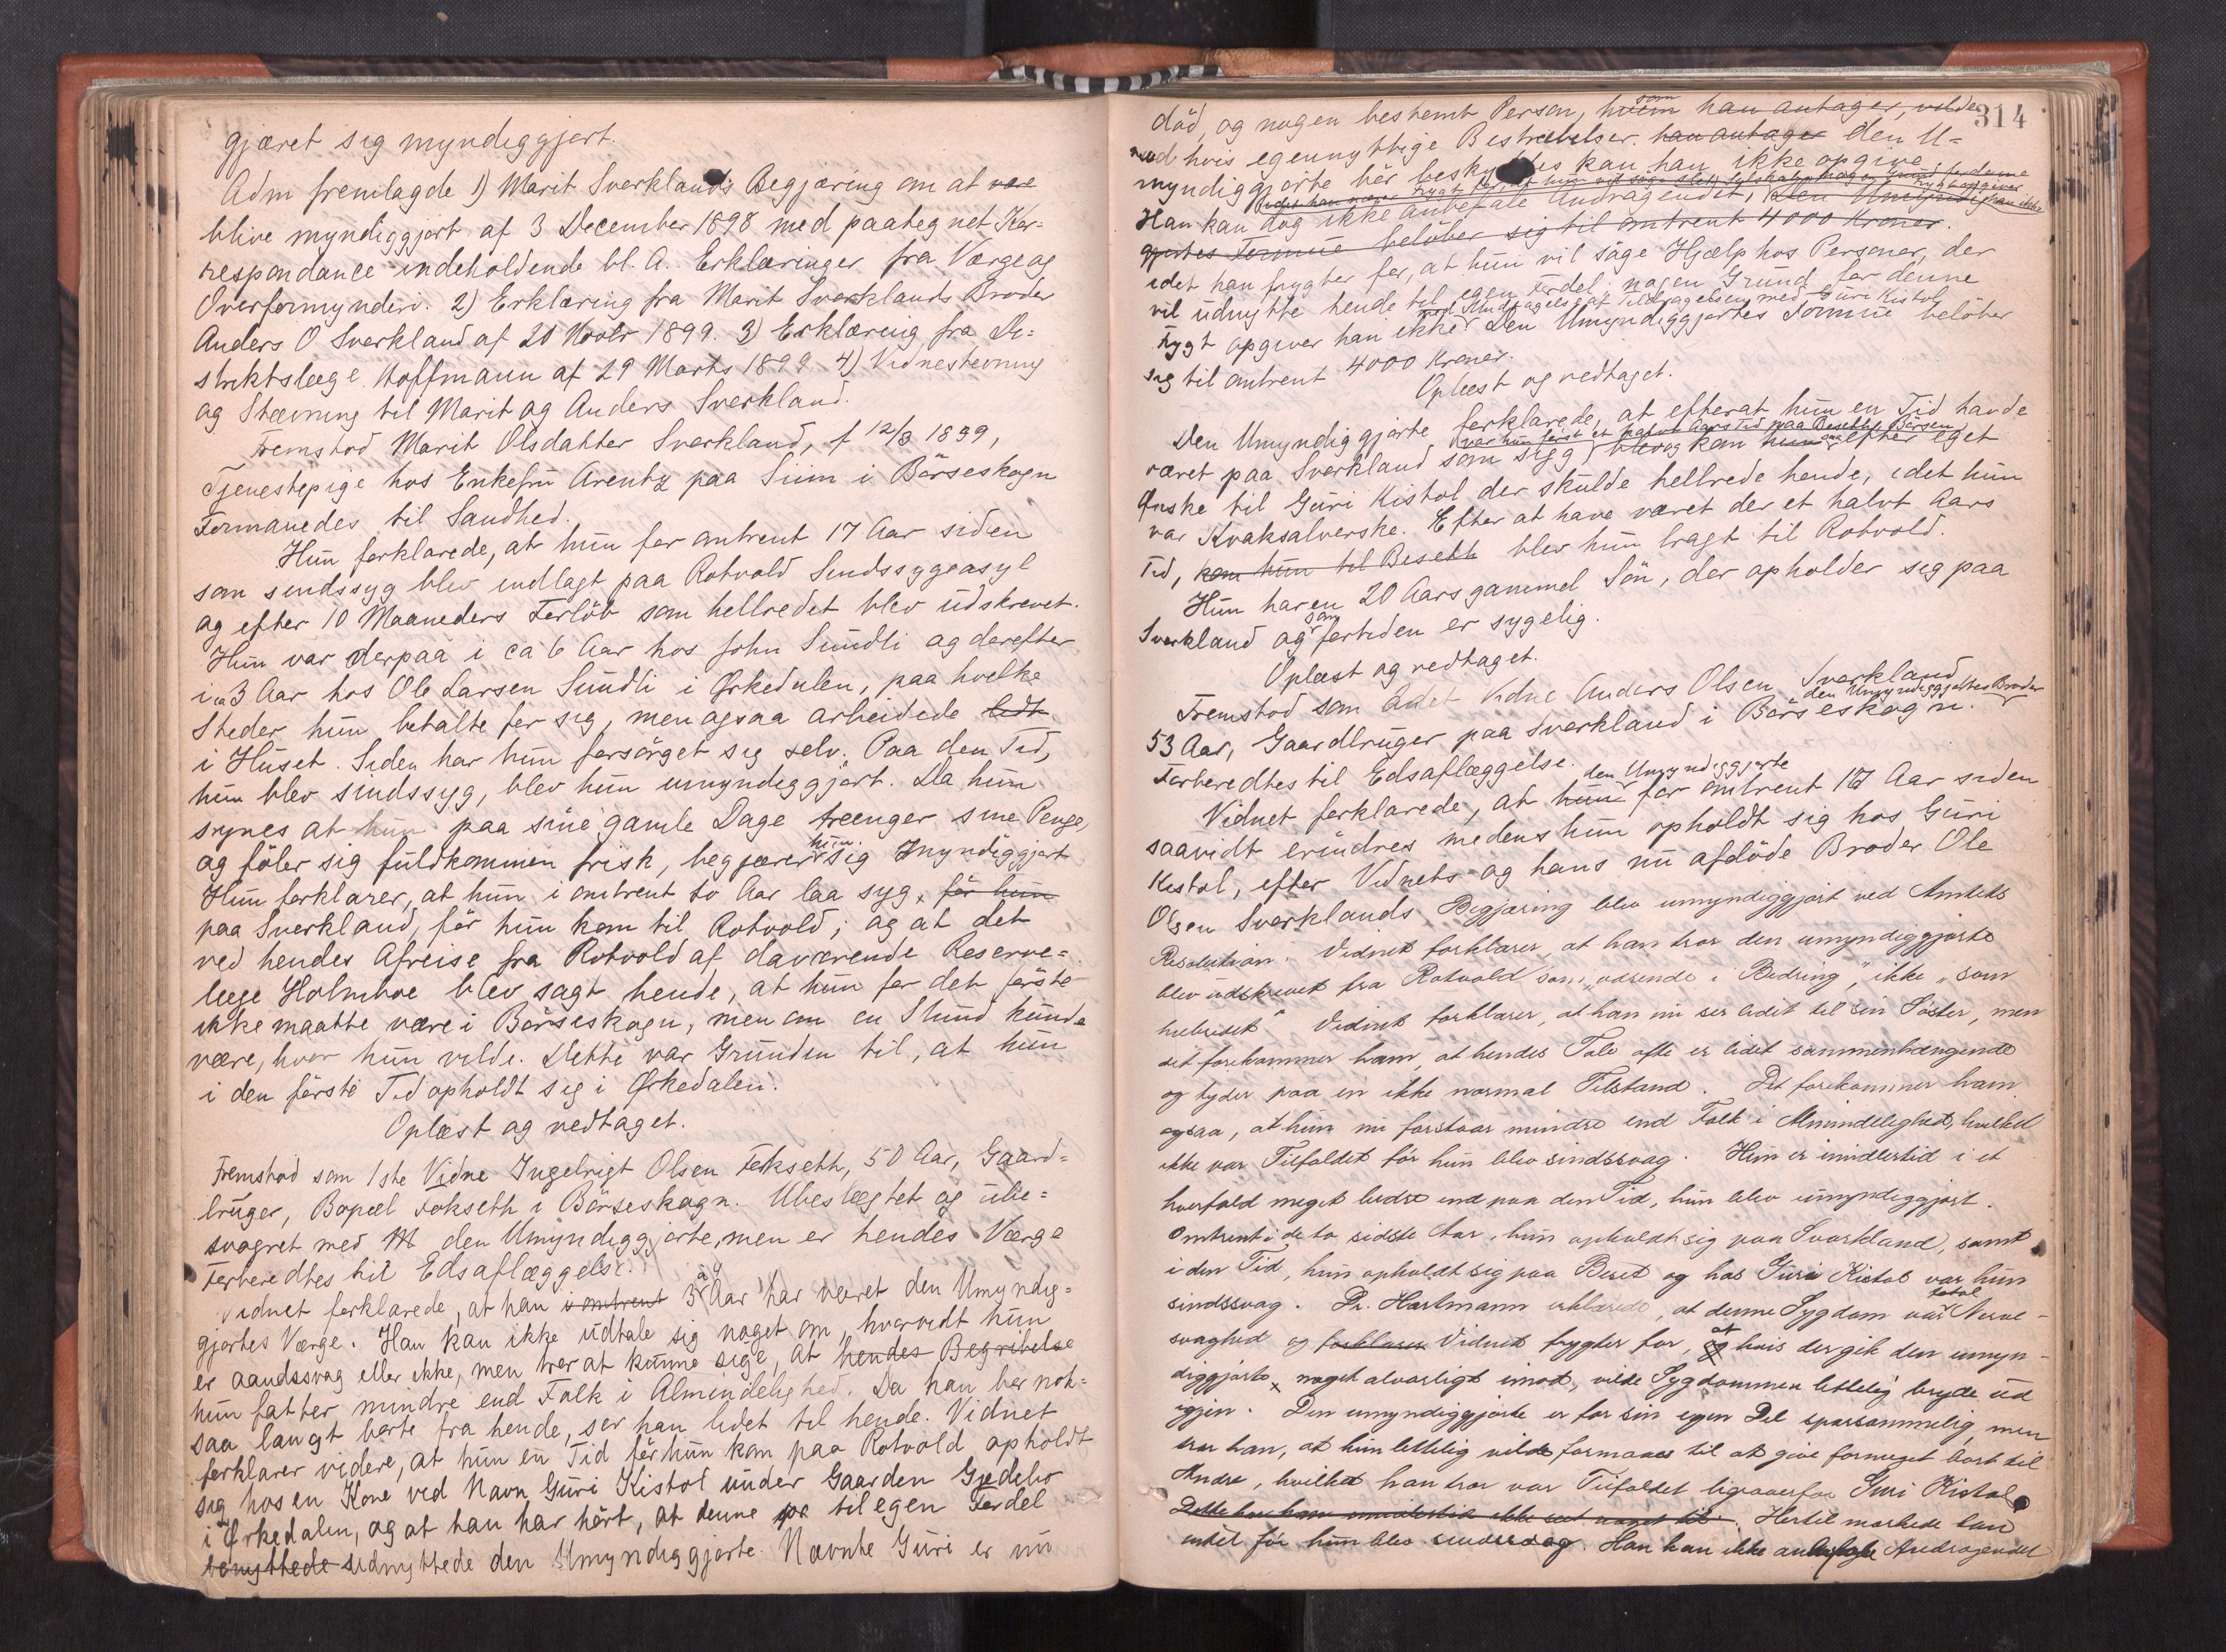 gjøret sig myndiggjort.
Adm fremlagde 1) Marit Sverklands Begjæring om at være
blive myndiggjort af 3 December 1898 med paategnet Kor-
respondance indeholdende bl. A. Erklæringer fra Værge og
Overformynderi. 2) Erklæring fra Marit Sverklands Broder
Anders O Sverkland af 20 Novbr 1899. 3) Erklæring fra Di-
striktslæge Hoffmann af 29 Marts 1899. 4) Vidnestevning
og Stævning til Marit og Anders Sverkland.
Fremstod Marit Olsdatter Sverkland, f 12/3 1859,
Tjenestepige hos Enkefru Arentz paa Siim i Börseskogn
Formanedes til Sandhed.
Hun forklarede, at hun for omtrent 17 Aar siden
som sindssyg blev indlagt paa Rotvold Sindssygeasyl
og efter 10 Maaneders Forlöb som helbredet blev udskrevet.
Hun var derpaa i ca 6 Aar hos John Sundli og derefter
i ca 3 Aar hos Ole Larsen Sundli i Ørkedalen, paa hvilke
Steder hun betalte for sig, men ogsaa arbeidede lidt
i Huset. Siden har hun forsörget sig selv. Paa den Tid,
hun blev sindssyg, blev hun umyndiggjort. Da hun
synes at hun paa sine gamle Dage trenger sine Penge,
og föler sig fuldkommen frisk, begjærer hun sig myndiggjort
Hun forklarer, at hun i omtrent to Aar laa syg, för hun
paa Sverkland, för hun kom til Rotvold; og at det
ved hendes Afreise fra Rotvold af daværende Reserve-
læge Holmboe blev sagt hende, at hun for det förste
ikke maatte være i Börseskogn, men om en Stund kunde
være, hvor hun vilde. Dette var Grunden til, at hun
i den förste Tid opholdt sig i Ørkedalen.
Oplæst og vedtaget.
Fremstod som 1ste Vidne Ingebrigt Olsen Fokseth, 50 Aar, Gaard-
bruger, Bopæl Fokseth i Börseskogn. Ubeslægtet og ube-
svogret med M den Umyndiggjorte, men er hendes Værge
Forberedtes til Edsaflæggelse.
Vidnet forklarede, at han i omtrent 3 à 4 Aar har været den Umyndig-
gjortes Værge. Han kan ikke udtale sig noget om, hvorvidt hun
er aandssvag eller ikke, men tror at kunne sige, at hendes Begribelse
hun fatter mindre end Folk i Almindelighed. Da han bor nok-
saa langt borte fra hende, ser han lidet til hende. Vidnet
forklarer videre, at hun en Tid för hun kom paa Rotvold opholdt
sig hos en Kone ved Navn Guri Kistol under Gaarden Gjedebo
i Ørkedalen, og at han har hört, at denne til egen Fordel
benyttede udnyttede den Umyndiggjorte. Nævnte Guri er nu
314
död, og nogen bestemt Person, hvem som han antager, vilde
mod hvis egennyttige Bestræbelser. han antager den U-
myndiggjorte bör beskyttes kan han ikke opgive.
Han kan dog ikke anbefale Andragendet, Den Umyndig-
gjortes Formue belöber sig til omtrent 4000 Kroner.
idet han frygter for, at hun vil söge Hjælp hos Personer, der
vil udnytte hende til egen Fordel; nogen Grund for denne
Frygt opgiver han ikke med Undtagelse af Tildragelsen med Guri Kistol. Den Umyndiggjortes Formue belöber
sig til omtrent 4000 Kroner.
Oplæst og vedtaget.
Den Umyndiggjorte forklarede, at efterat hun en Tid havde
været paa Sverkland som syg var hun först et halvt Aars Tid paa Beseth i Börsen blev og kom hun saa efter eget
Ønske til Guri Kistol der skulde helbrede hende, idet hun
var Kvaksalverske. Efter at have været der et halvt Aars
Tid, kom hun til Beseth blev hun bragt til Rotvold.
Hun har en 20 Aars gammel Sön, der opholder sig paa
Sverkland og som fortiden er sygelig.
Oplæst og vedtaget.
Fremstod som Andet Vidne Anders Olsen Sverkland
den Umyndiggjortes Broder
53 Aar, Gaardbruger paa Sverkland i Börseskogn.
Forberedtes til Edsaflæggelse.
Vidnet forklarede, at hun den Umyndiggjorte for omtrent 17 Aar siden
saavidt erindres medens hun opholdt sig hos Guri
Kistol, efter Vidnets og hans nu afdöde Broder Ole
Olsen Sverklands Begjæring blev umyndiggjort ved Amtets
Resolution. Vidnet forklarer, at han tror den umyndiggjorte
blev udskrevet fra Rotvold som "værende i Bedring", ikke "som
helbredet" Vidnet forklarer, at han nu ser lidet til sin Söster, men
det forekommer ham, at hendes Tale ofte er lidet sammenhængende
og tyder paa en ikke normal Tilstand. Det forekommer ham
ogsaa, at hun nu forstaar mindre end Folk i Almindelighed, hvilket
ikke var Tilfældet för hun blev sindssvag. Hun er imidlertid i et
hverfald meget bedre end paa den Tid, hun blev umyndiggjort.
Omtrent i de to sidste Aar, hun opholdt sig paa Sverkland, samt
i den Tid, hun opholdt sig paa Beset og hos Guri Kistol var hun
sindssvag. Dr. Hartmann erklærede, at denne Sygdom var total Nerve-
svaghed og forklarer Vidnet frygter for, at hvis der gik den umyn-
diggjorte noget alvorligt imod, vilde Sygdommen lettelig bryde ud
igjen. Den umyndiggjorte er for sin egen Del sparsommelig, men
tror han, at hun lettelig vilde formaaes til at give formeget bort til
Andre, hvilket han tror var Tilfældet ligeoverfor Guri Kistol
Dette har han imidlertid ikke seet noget til. Hertil mærkede han
intet för hun blev sindssvag. Han kan ikke anbefale Andragendet